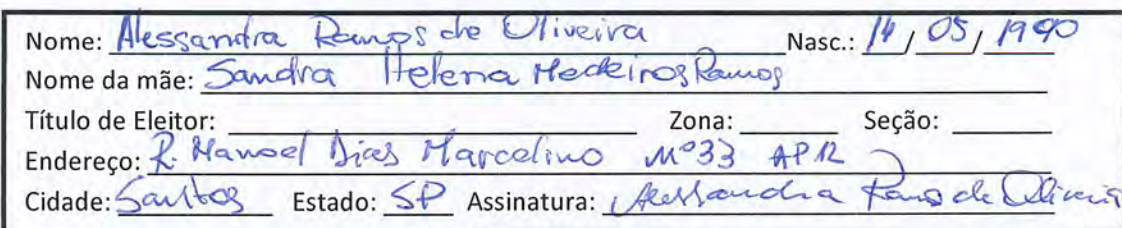 Nome: Alessandra Ramos de Oliveira Nasc.: 14/05/1990
Nome da mãe: Sandra Helena Medeiros Ramos
Título de Eleitor: Zona: Seção:
Endereço: R. Manoel Dias Marcelino Nº33 AP 12
Cidade: Santos Estado: SP Assinatura: Alessandra Ramos de Oliveira